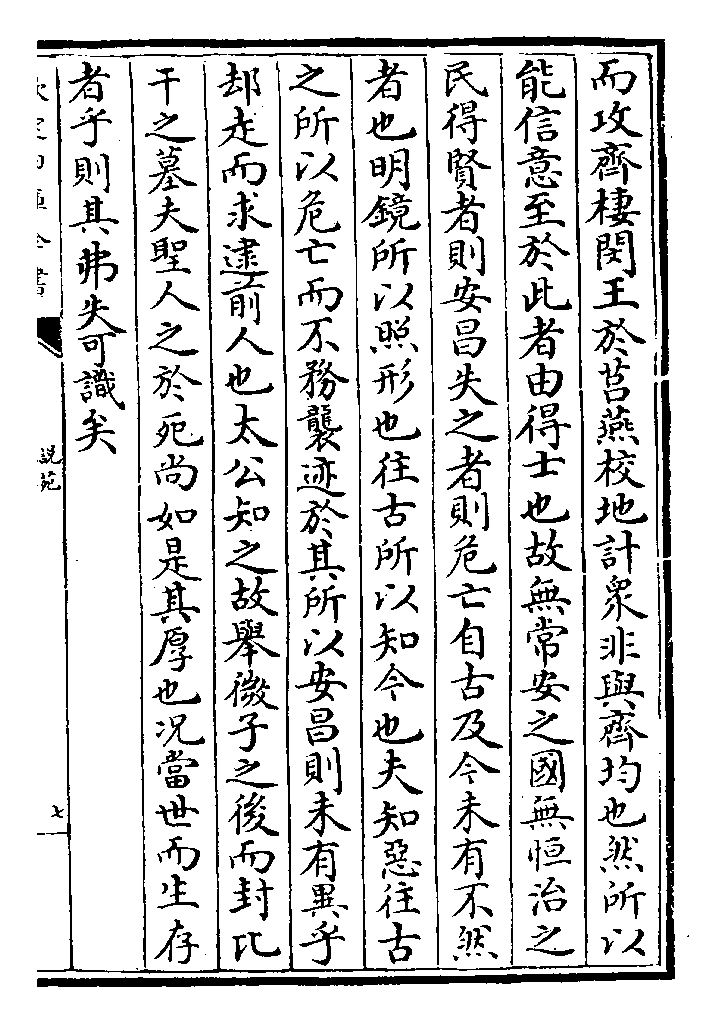 而攻齊棲閔王於莒燕校地計衆非與齊均也然所以
能信意至於此者由得士也故無常安之國無恒治之
民得賢者則安昌失之者則危亡自古及今未有不然
者也明鏡所以照形也往古所以知今也夫知惡往古
之所以危亡而不務襲迹於其所以安昌則未有異乎
却走而求逮前人也太公知之故舉微子之後而封比
干之墓夫聖人之於死尚如是其厚也况當世而生存
者乎則其弗失可識矣
欽定四庫全書
說苑
七